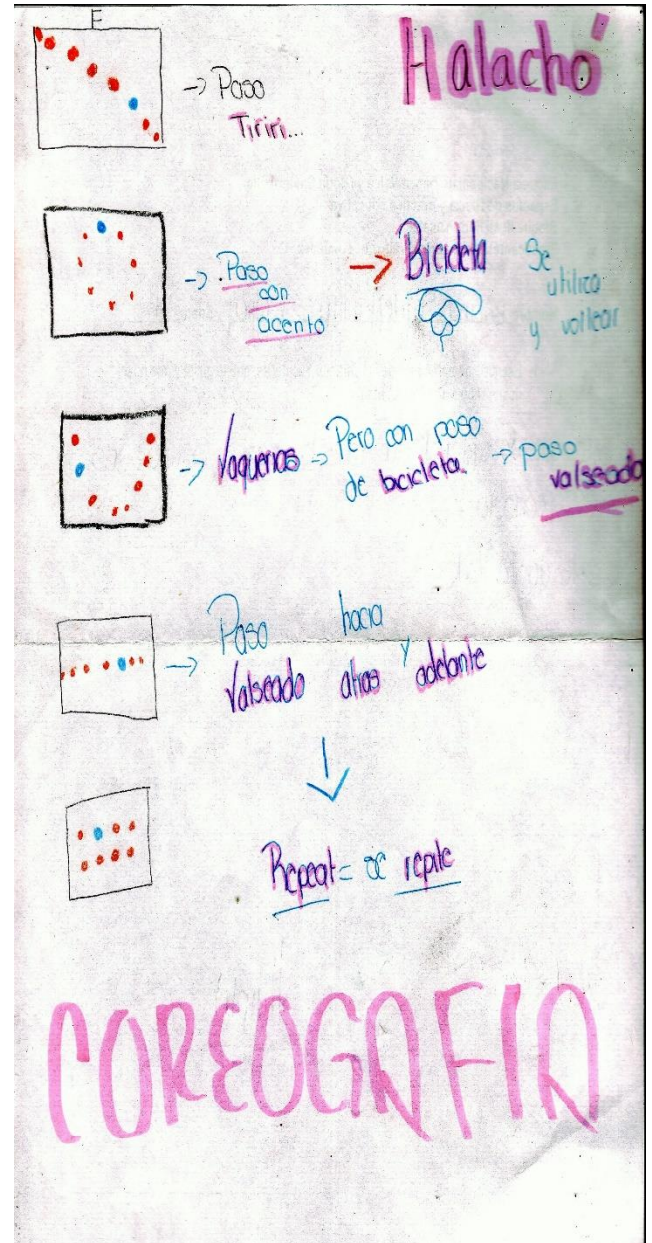 E
Halachó
→ Paso
Tiriri...
→ Paso
con
acento
→ Bicicleta
Se
utiliza
y voltear
→ Vaquerias → Pero con paso
de bicicleta. → paso
valseado
→ Paso hacia
Valseado atras y adelante
Repeat = se repite
COREOGAFIA